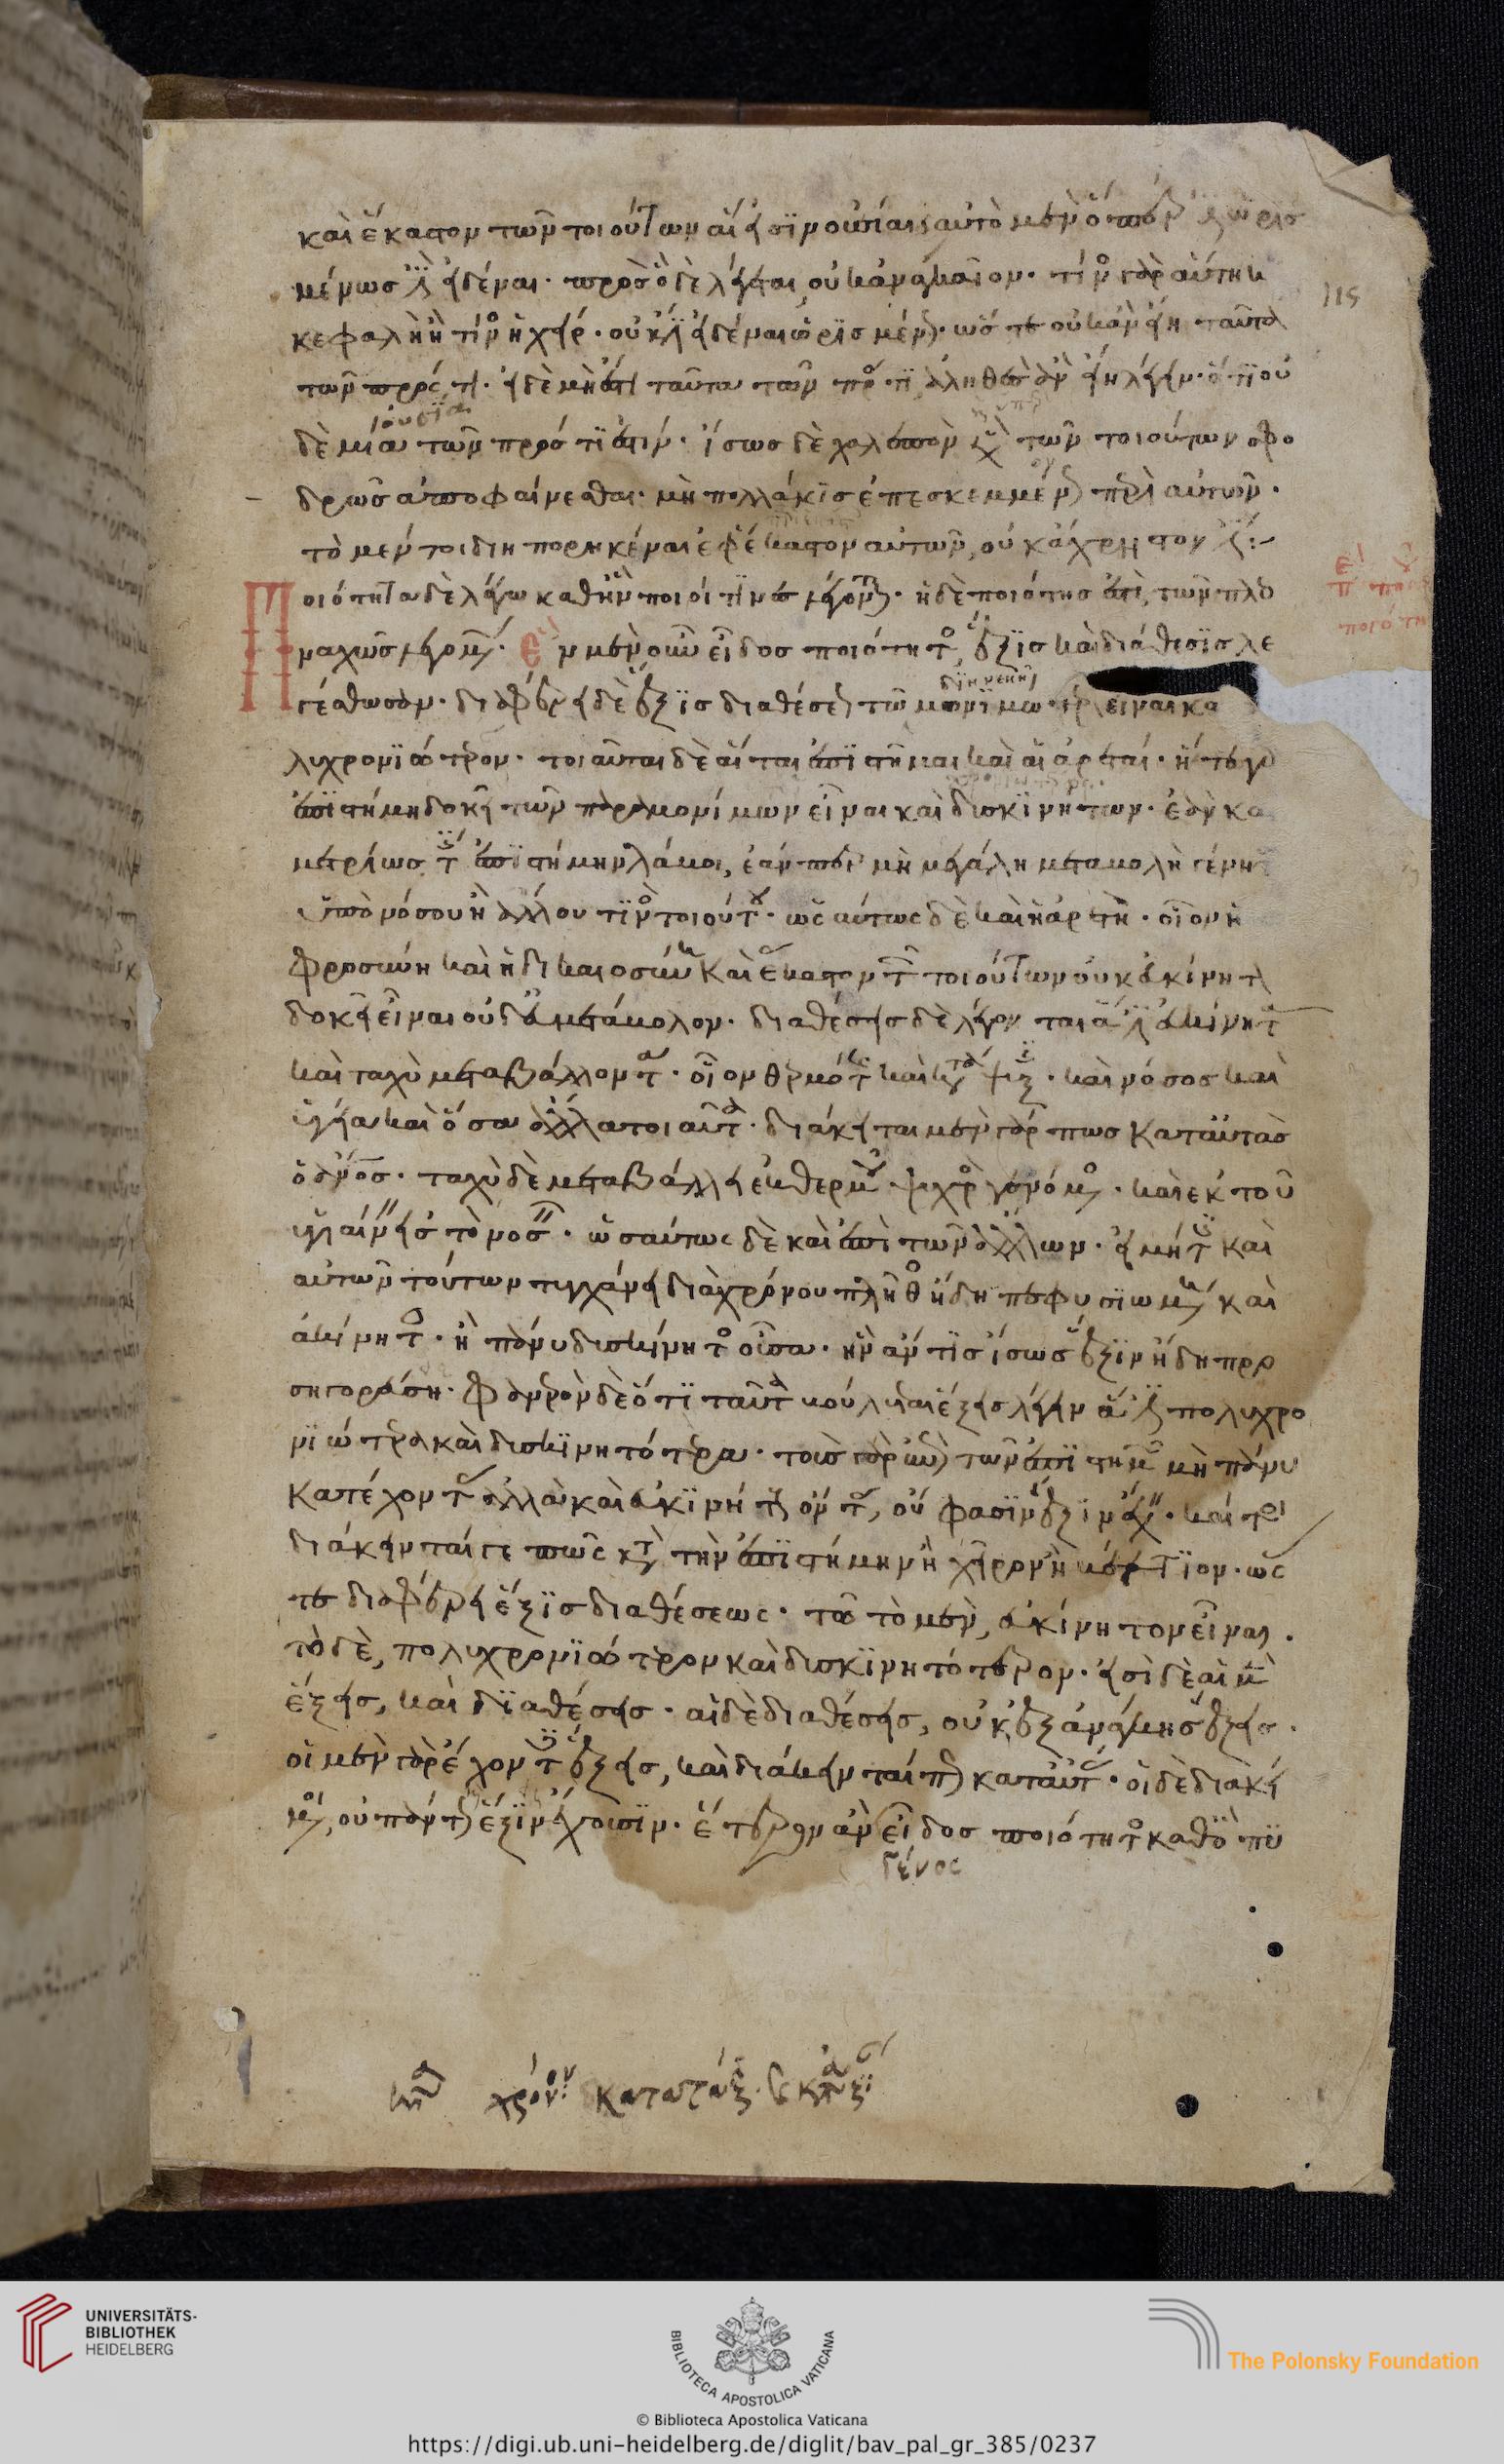 καὶ ἕκαστον τῶν τοιούτων αἵ εἰσιν οὐσίαι, αὐτὸ μὲν ὅπερ ἐστὶν ὡρισ
μένως ἔστιν εἰδέναι· πρὸς ὃ δὲ λέγεται, οὐκ ἀναγκαῖον· τίνος γὰρ αὕτη ἡ
κεφαλὴ ἢ τίνος ἡ χείρ· οὐκ ἔστιν εἰδέναι ὡρισμένως· ὥστε οὐκ ἂν εἴη ταῦτα
τῶν πρός τι· εἰ δὲ μή ἐστι ταῦτα τῶν πρός τι, ἀληθὲς ἂν εἴη λέγειν· ὅτι οὐ
οὐσία
δὲ μία τῶν πρός τί ἐστιν· ἴσως δὲ χαλεπὸν περὶ τῶν τοιούτων σφο
δρῶς ἀποφαίνεσθαι· μὴ πολλάκις ἐπεσκεμμένον περὶ αὐτῶν·
τὸ μέντοι διηπορηκέναι ἐφ' ἕκαστον αὐτῶν, οὐκ ἄχρηστόν ἐστι:~
Ποιότητα δὲ λέγω καθ' ἣν ποιοί τινες λέγονται· ἡ δὲ ποιότης ἐστὶ, τῶν πλεο
ναχῶς λεγομένων· ἓν μὲν οὖν εἶδος ποιότητος, ἕξις καὶ διάθεσις λε
γέσθωσαν· διαφέρει δὲ ἕξις διαθέσεως τῷ μονιμώτερον εἶναι κα
λυχρονιώτερον· τοιαῦται δὲ αἵ τε ἐπιστῆμαι καὶ αἱ ἀρεταί· ἥ τε γὰρ
ἐπιστήμη δοκεῖ τῶν παραμονίμων εἶναι καὶ δυσκινήτων· ἐὰν κα
μετρίως τις ἐπιστήμην λάβοι, ἐάνπερ μὴ μεγάλη μεταβολὴ γένητ
ὑπὸ νόσου ἢ ἄλλου τινὸς τοιούτου· ὡσαύτως δὲ καὶ ἡ ἀρετὴ· οἷον ἡ
φροσύνη καὶ ἡ δικαιοσύνη καὶ ἕκαστον τῶν τοιούτων οὐκ εὐκίνητον
δοκεῖ εἶναι οὐδ' εὐμετάβολον· διαθέσεις δὲ λέγονται ἅ ἐστιν εὐκίνητα
καὶ ταχὺ μεταβάλλοντα· οἷον θερμότης καὶ κατάψυξις· καὶ νόσος καὶ
ὑγεία καὶ ὅσα ἄλλα τοιαῦτα· διάκειται μὲν γάρ πως κατὰ ταύτας
ὁ ἄνθρωπος· ταχὺ δὲ μεταβάλλει ἐκ θερμοῦ ψυχρὸς γενόμενος· καὶ ἐκ τοῦ
ὑγιαίνειν εἰς τὸ νοσεῖν· ὡσαύτως δὲ καὶ ἐπὶ τῶν ἄλλων· εἰ μή τις καὶ
αὐτῶν τούτων τυγχάνει διὰ χρόνου πλῆθος ἤδη πεφυσιωμένη καὶ
ἀκίνητος· ἢ πάνυ δυσκίνητος οὖσα· ἣν ἄν τις ἴσως ἕξιν ἤδη προ
σαγορεύσῃ· φανερὸν δὲ ὅτι ταῦτα βούλεται ἕξεις λέγειν ἅ ἐστι πολυχρο
νιώτερα καὶ δυσκινητότερα· τοὺς γὰρ τῶν ἐπιστημῶν μὴ πάνυ
κατέχοντας ἀλλὰ καὶ εὐκινήτους ὄντας, οὔ φασιν ἕξιν ἔχειν· καίτοι
διάκεινταί γέ πως κατὰ τὴν ἐπιστήμην ἢ χεῖρον ἢ βέλτιον· ὥσ
τε διαφέρει ἕξις διαθέσεως· τῷ τὸ μὲν, εὐκίνητον εἶναι·
τὸ δὲ, πολυχρονιώτερον καὶ δυσκινητότερον· εἰσὶ δὲ αἱ μὲν
ἕξεις, καὶ διαθέσεις· αἱ δὲ διαθέσεις, οὐκ ἐξ ἀνάγκης ἕξεις·
οἱ μὲν γὰρ ἔχοντες ἕξεις, καὶ διάκεινταί πως κατ' αὐτάς· οἱ δὲ διακεί
μενοι, οὐ πάντως ἕξιν ἔχουσιν· ἕτερον ἂν εἶδος ποιότητος καθ' ὃ πυ
γένος
UNIVERSITÄTS-
BIBLIOTHEK
HEIDELBERG
BIBLIOTECA APOSTOLICA VATICANA
The Polonsky Foundation
© Biblioteca Apostolica Vaticana
https://digi.ub.uni-heidelberg.de/diglit/bav_pal_gr_385/0237